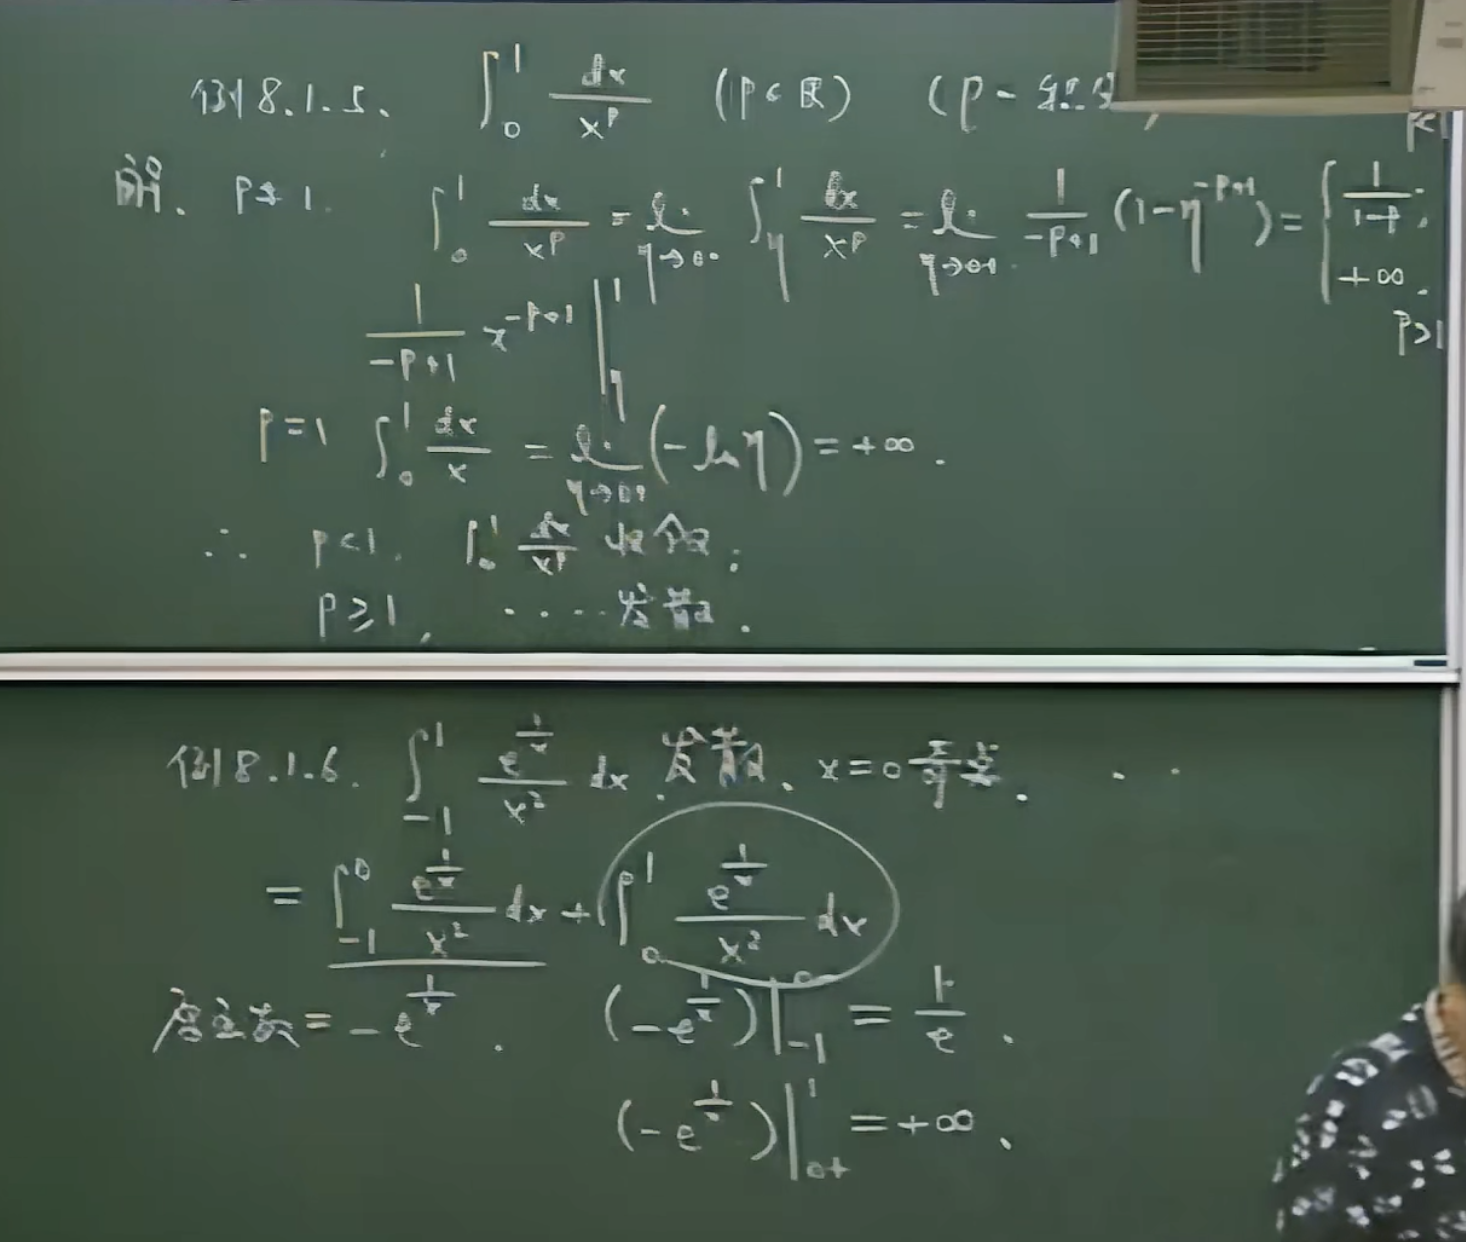 例8.1.5. ∫₀¹ dx/x^p (p∈ℝ) (p-积分
p<1
解. p≠1. ∫₀¹ dx/x^p = lim_{η→0+} ∫_η¹ dx/x^p = lim_{η→0+} 1/(-p+1) (1-η^{-p+1}) = { 1/(1-p); +∞.
p>1
1/(-p+1) x^{-p+1} |_η^1
p=1 ∫₀¹ dx/x = lim_{η→0+} (-ln η) = +∞.
∴ p<1. ∫₀¹ dx/x^p 收敛;
p≥1, ····发散.
例8.1.6. ∫_{-1}^1 e^{1/x}/x² dx 发散. x=0奇点.
= ∫_{-1}^0 e^{1/x}/x² dx + ∫₀¹ e^{1/x}/x² dx
原函数 = -e^{1/x}. (-e^{1/x})|_{-1}^{0-} = 1/e.
(-e^{1/x})|_{0+}^1 = +∞.